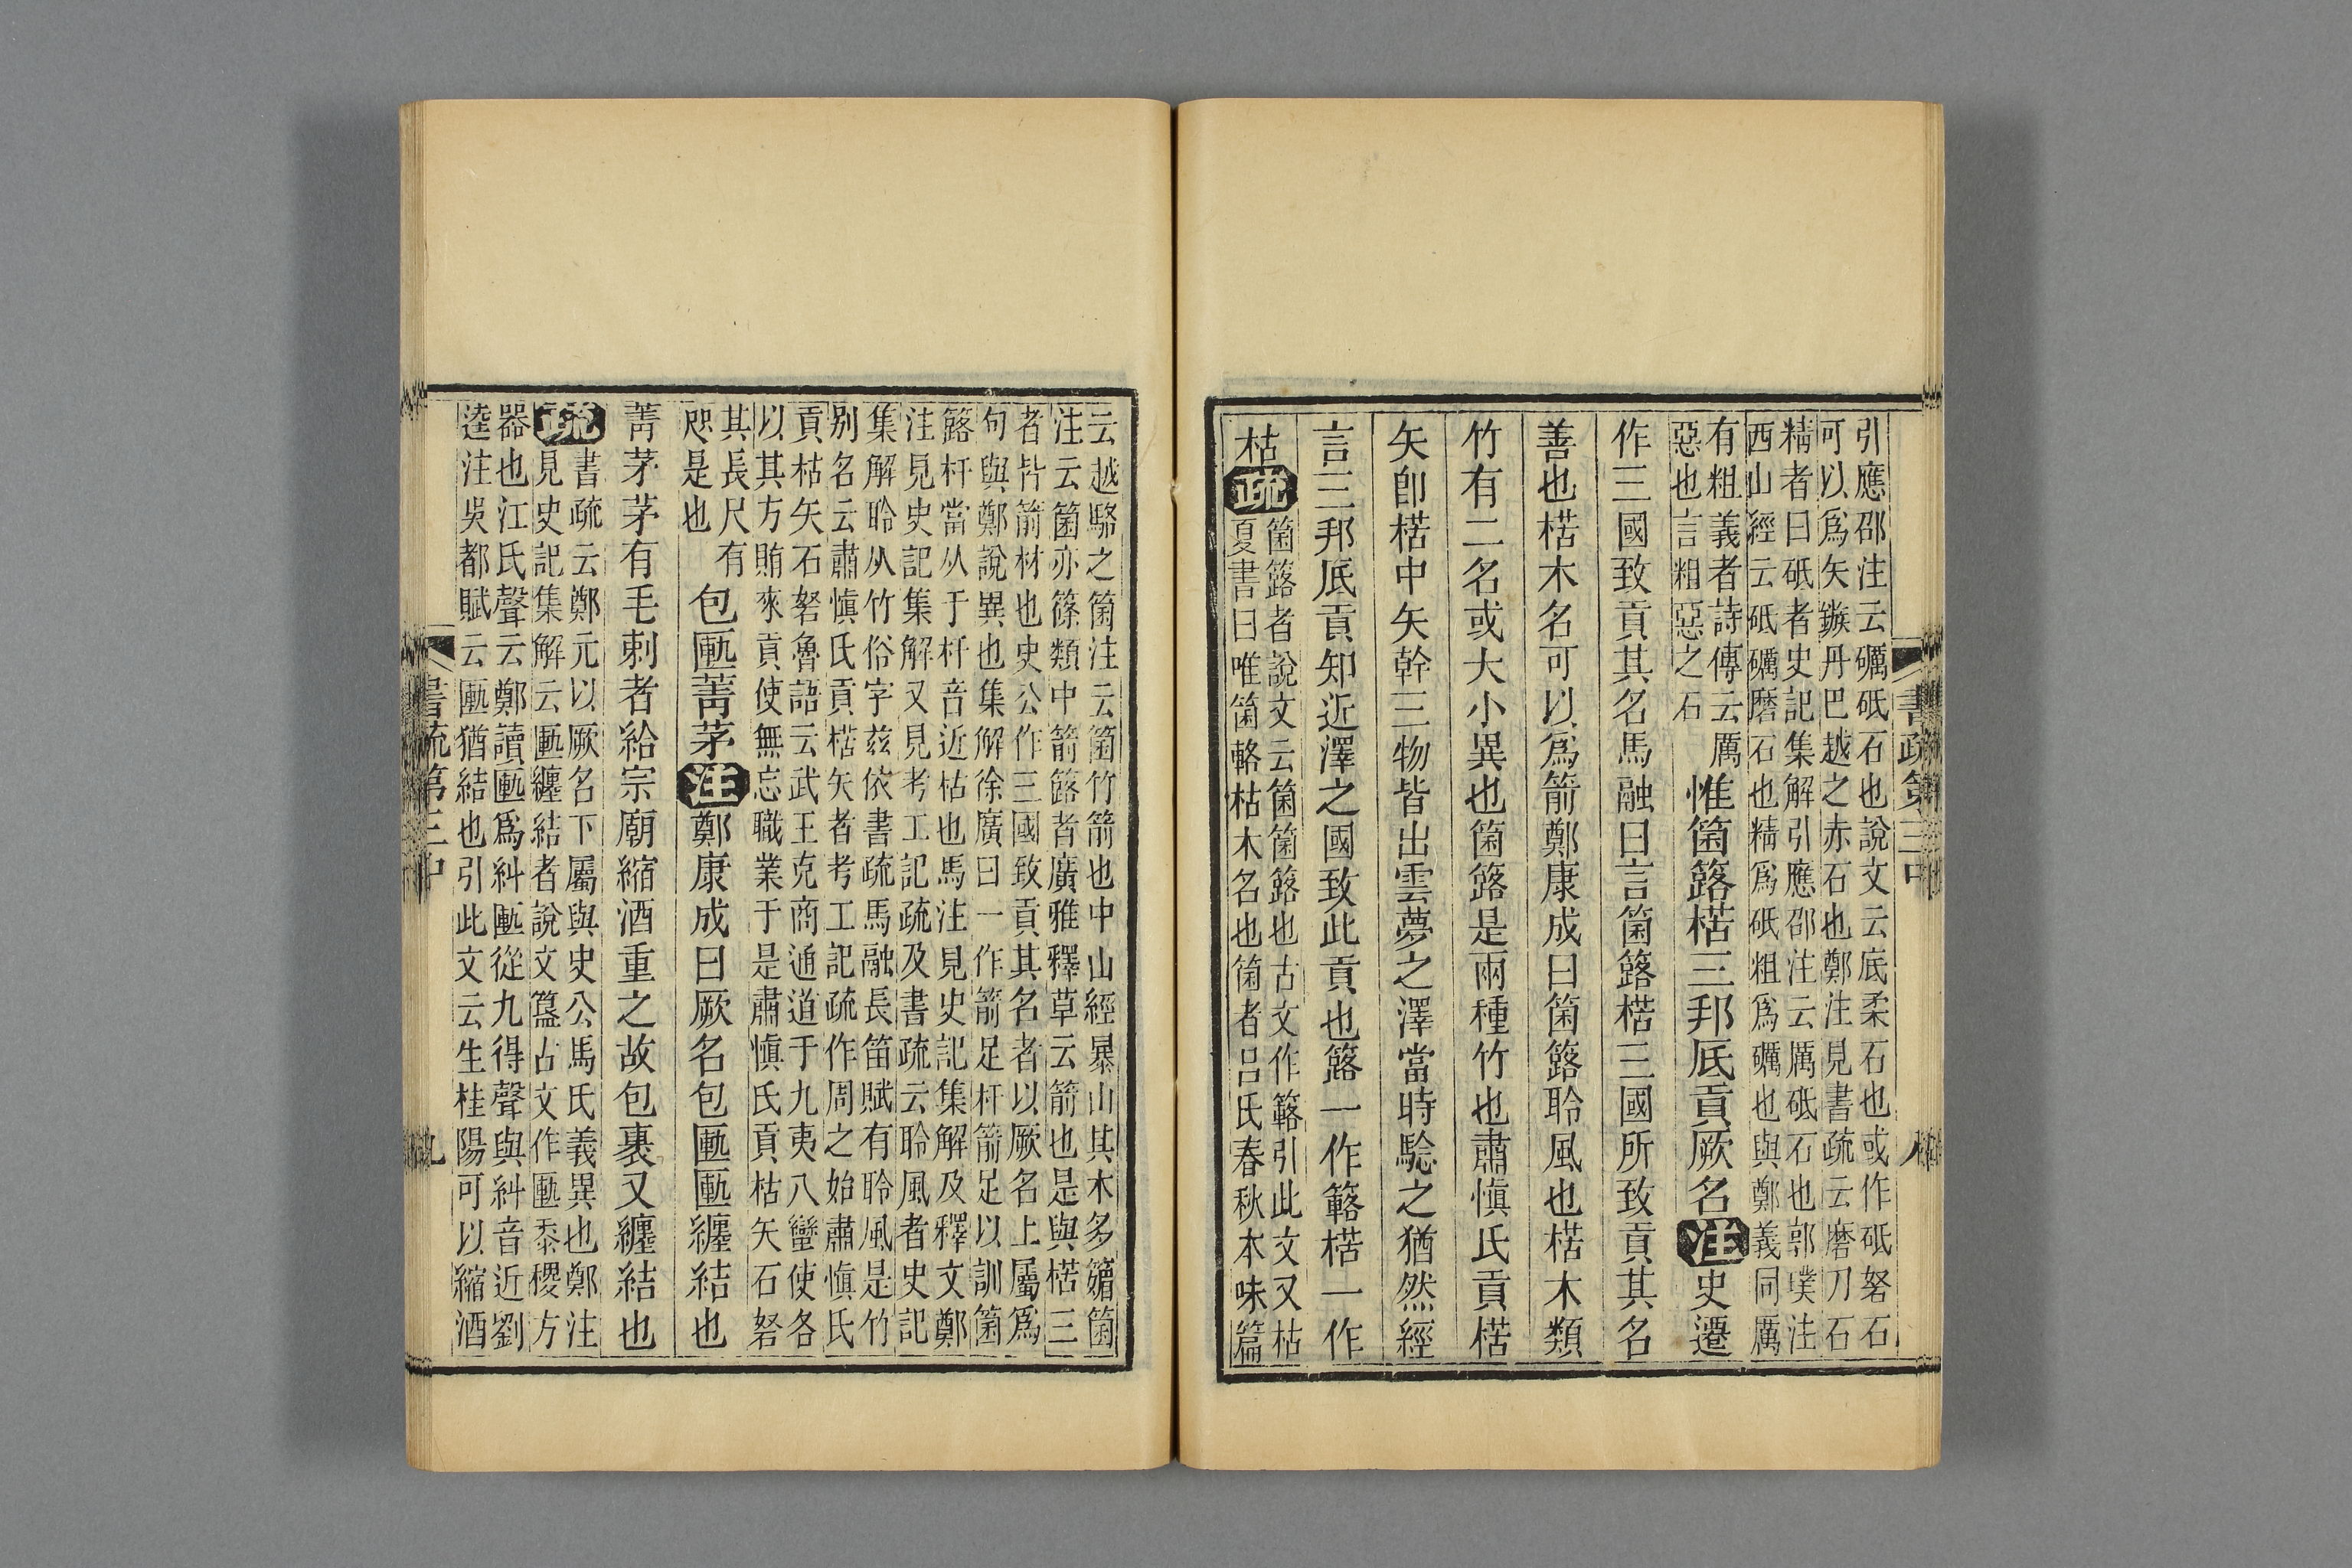 書疏第三中
引應邵注云礪砥石也說文云底柔石也或作砥砮石
可以爲矢鏃丹巴越之赤石也鄭注見書疏云磨刀石
精者曰砥者史記集解引應邵注云厲砥石也郭璞注
西山經云砥礪磨石也精爲砥粗爲礪也與鄭義同厲
有粗義者詩傳云厲
惡也言粗惡之石
惟箘簵楛三邦厎貢厥名注史遷
作三國致貢其名馬融曰言箘簵楛三國所致貢其名
善也楛木名可以爲箭鄭康成曰箘簵聆風也楛木類
竹有二名或大小異也箘簵是兩種竹也肅愼氏貢楛
矢卽楛中矢幹三物皆出雲夢之澤當時驗之猶然經
言三邦厎貢知近澤之國致此貢也簵一作簬楛一作
枯疏
箘簵者說文云箘箘簵也古文作簬引此文又枯
夏書曰唯箘輅枯木名也箘者呂氏春秋本味篇
云越駱之箘注云箘竹箭也中山經暴山其木多䉋箘
注云箘亦篠類中箭簵者廣雅釋草云箭也是與楛三
者皆箭材也史公作三國致貢其名者以厥名上屬爲
句與鄭說異也集解徐廣曰一作箭足杆箭足以訓箘
簵杆當从于杆音近枯也馬注見史記集解及釋文鄭
注見史記集解又見考工記疏及書疏云聆風者史記
集解聆从竹俗字茲依書疏馬融長笛賦有聆風是竹
别名云肅愼氏貢楛矢者考工記疏作周之始肅愼氏
貢枯矢石砮魯語云武王克商通道于九夷八蠻使各
以其方賄來貢使無忘職業于是肅愼氏貢枯矢石砮
其長尺有
咫是也
包匭菁茅注鄭康成曰厥名包匭匭纏結也
菁茅茅有毛刺者給宗廟縮酒重之故包裹又纏結也
疏
書疏云鄭元以厥名下屬與史公馬氏義異也鄭注
見史記集解云匭纏結者說文簋古文作匭黍稷方
器也江氏聲云鄭讀匭爲糾匭從九得聲與糾音近劉
逵注吳都賦云匭猶結也引此文云生桂陽可以縮酒
書疏第三中
九